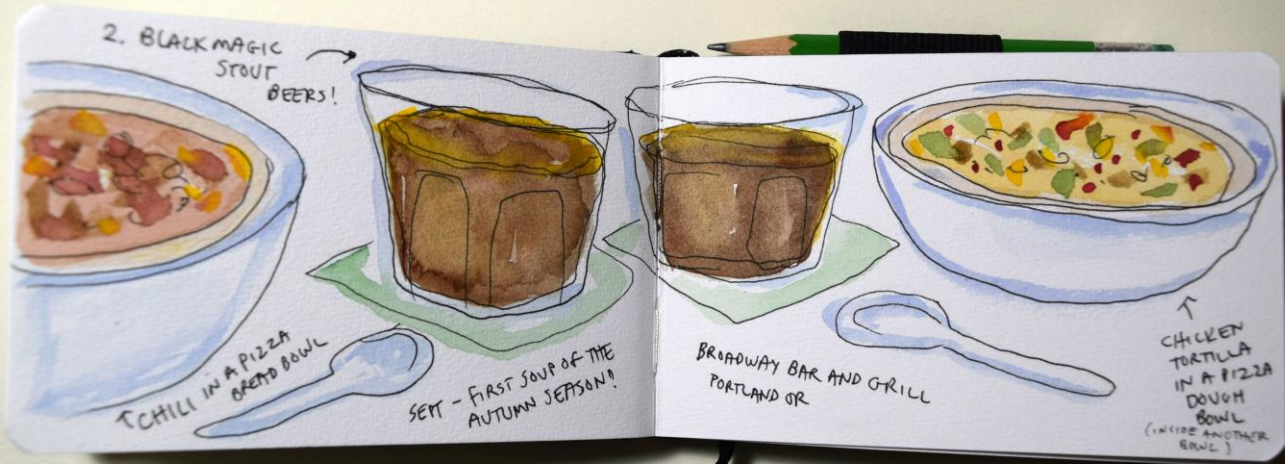 2. BLACK MAGIC
STOUT
BEERS!
CHILI IN A PIZZA
BREAD BOWL
SEPT - FIRST SOUP OF THE
AUTUMN SEASON!
BROADWAY BAR AND GRILL
PORTLAND OR
CHICKEN
TORTILLA
IN A PIZZA
DOUGH
BOWL
(INSIDE ANOTHER
BOWL)